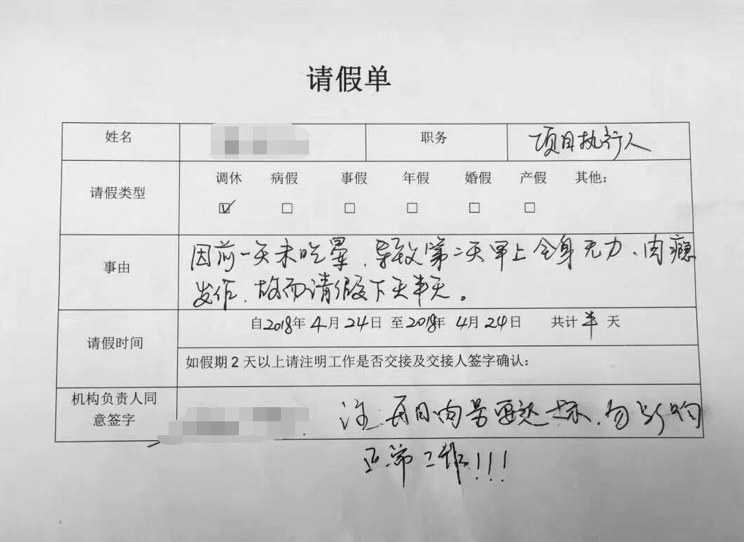 请假单
姓名 职务 项目执行人
请假类型 调休 病假 事假 年假 婚假 产假 其他:
☑ □ □ □ □ □
事由 因前一天未吃荤,导致第二天早上全身无力、肉瘾
发作,故而请假下午半天。
请假时间 自2018年4月24日至2018年4月24日 共计半天
如假期2天以上请注明工作是否交接及交接人签字确认:
机构负责人同
意签字
注:每日肉量要达标,勿影响
正常工作!!!